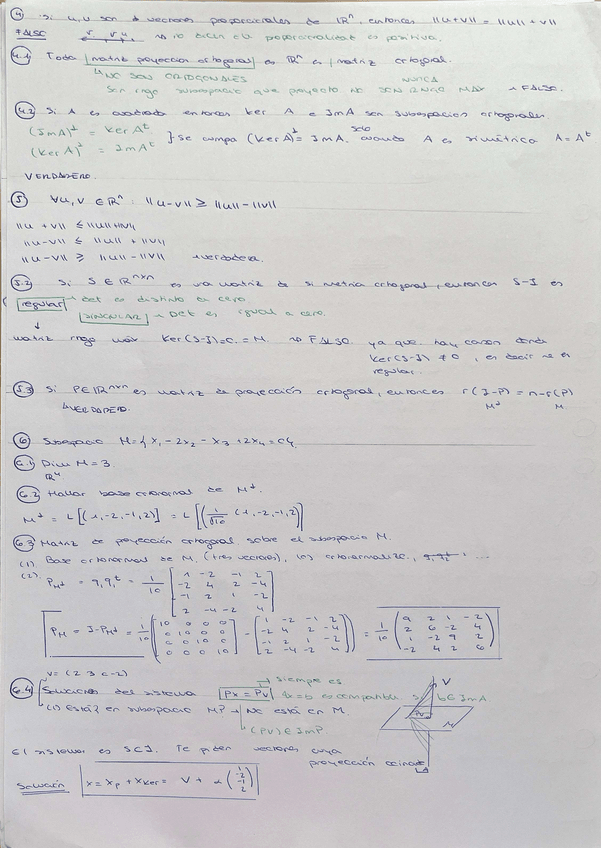 4 Si u,v son 2 vectores proporcionales de ℝⁿ, entonces ||u+v|| = ||u|| + ||v||
FALSO no dicen si la proporcionalidad es positiva.
4.1 Toda matriz proyección ortogonal es ℝⁿ es matriz ortogonal.
NO SON ORTOGONALES NUNCA
Son rango subespacio que proyecto. NO SON RANGO MAX → FALSO.
4.2 Si A es cuadrada entonces Ker A e ImA son subespacios ortogonales.
(ImA)^⊥ = Ker A^t
(Ker A)^⊥ = ImA^t } Se cumpla (Ker A)^⊥ = ImA. solo cuando A es simétrica A = A^t
VERDADERO.
5 ∀u,v ∈ ℝⁿ: ||u-v|| ≥ ||u|| - ||v||
||u+v|| ≤ ||u|| + ||v||
||u-v|| ≤ ||u|| + ||v||
||u-v|| ≥ ||u|| - ||v|| → verdadera.
5.2 Si S ∈ ℝⁿˣⁿ es una matriz de simetría ortogonal, entonces S-I es
regular → det es distinto a cero
SINGULAR → Det es igual a cero.
matriz rango max Ker(S-I) = 0 = M. → FALSO. ya que hay casos donde
Ker(S-I) ≠ 0, es decir no es
regular.
5.3 Si P∈ℝⁿˣⁿ es matriz de proyección ortogonal, entonces r(I-P) = n-r(P)
M^⊥ M
↳ VERDADERO.
6 Subespacio M = { x₁ - 2x₂ - x₃ + 2x₄ = 0 }.
6.1 Dim M = 3.
ℝ⁴
6.2 Hallar base ortonormal de M^⊥.
M^⊥ = L[(1,-2,-1,2)] = L[(1/√10 (1,-2,-1,2)]
6.3 Matriz de proyección ortogonal sobre el subespacio M.
(1). Base ortonormal de M, (tres vectores), los ortonormalizo,
(2). P_M^⊥ = q₁q₁^t = 1/10
1 -2 -1 2
-2 4 2 -4
-1 2 1 -2
2 -4 -2 4
P_M = I-P_M^⊥ = 1/10 ( [10 0 0 0 - [1 -2 -1 2 ) = 1/10 (9 2 1 -2
0 10 0 0 -2 4 2 -4 2 6 -2 4
0 0 10 0 -1 2 1 -2 1 -2 9 2
0 0 0 10] 2 -4 -2 4] -2 4 2 6)
v = (2 3 0 -2)
6.4 Soluciones del sistema Px = Pv → siempre es Ax=b es compatible si b∈ImA
(1) está? en subespacio M? → NO está en M.
(Pv) ∈ ImP
V
Pv
M
El sistema es SCI. Te piden vectores cuya
proyección
Solución x = xp + xker = V + α (1 -2 -1 2)